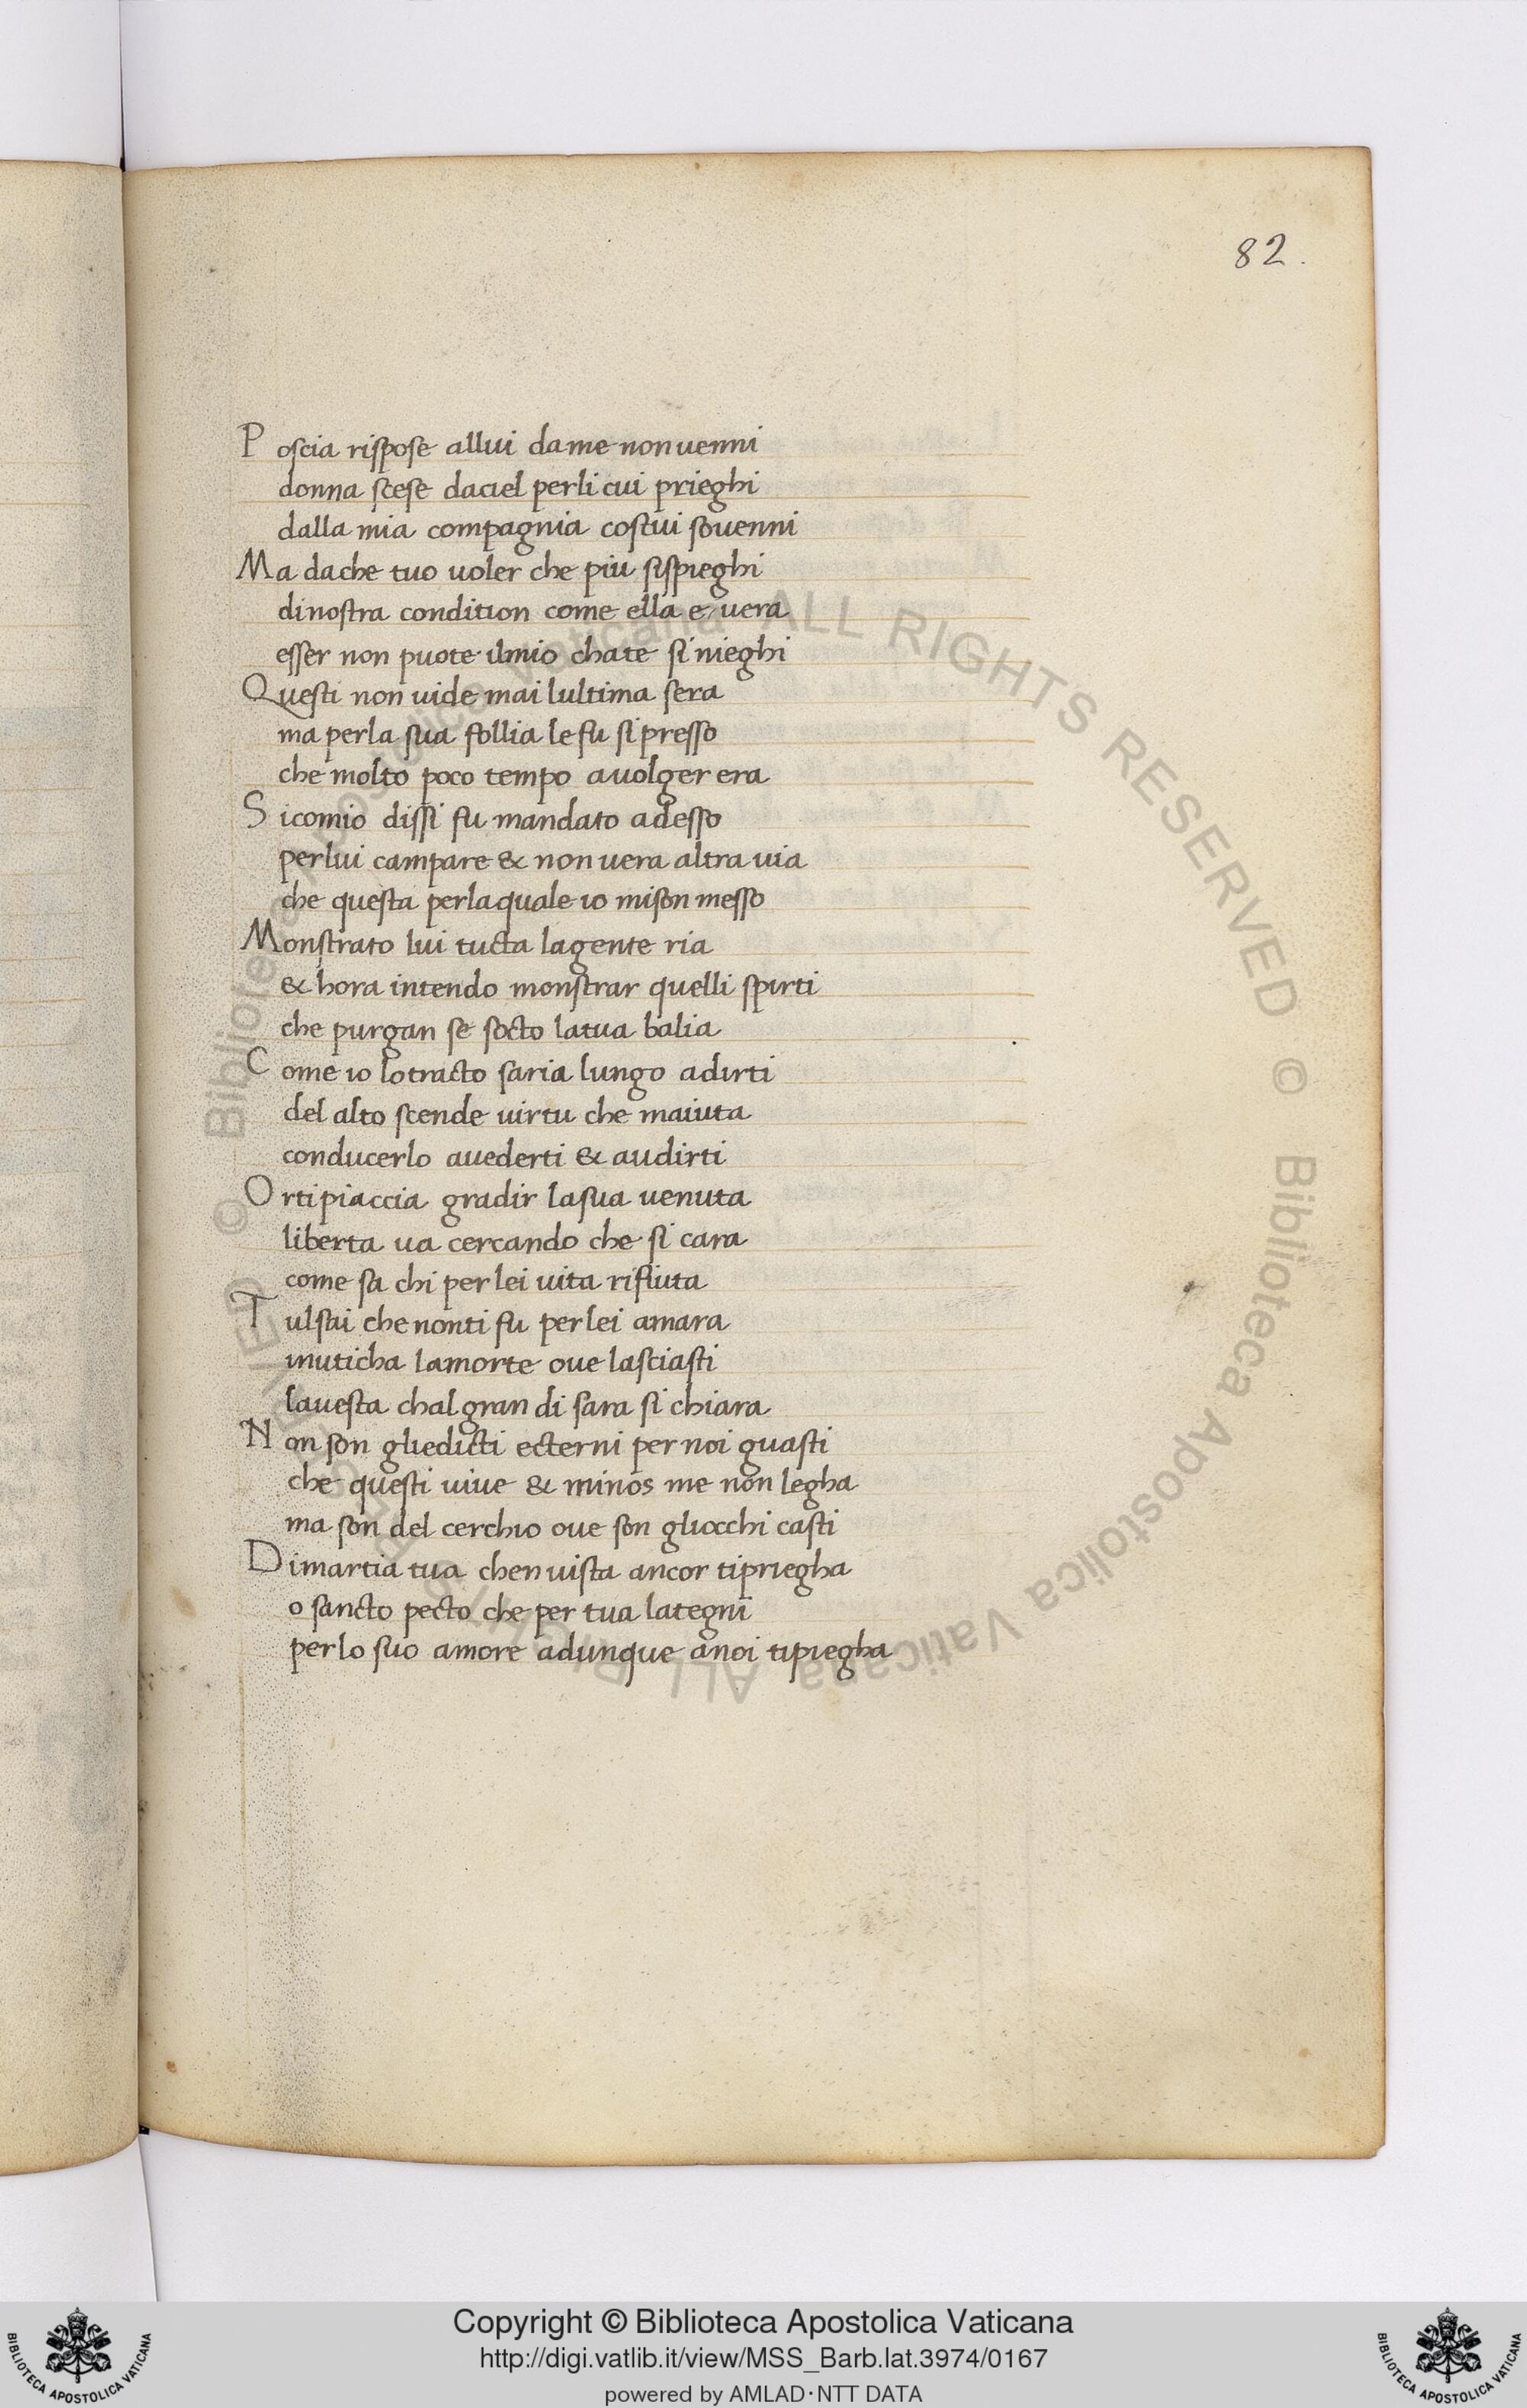 82.
Poscia rispose allui da me non uenni
donna scese daciel perli cui prieghi
dalla mia compagnia costui souenni
Ma dache tuo uoler che piu sispieghi
dinostra condition come ella e uera
esser non puote ilmio chate si nieghi
Questi non uide mai lultima sera
ma perla sua follia le fu si presso
che molto poco tempo auolger era
Sicomio dissi fu mandato adesso
perlui campare & non uera altra uia
che questa perlaquale io mison messo
Monstrato lui tucta lagente ria
& hora intendo monstrar quelli spirti
che purgan se socto latua balia
Come io lotracto saria lungo adirti
del alto scende uirtu che maiuta
conducerlo auederti & audirti
Ortipiaccia gradir lasua uenuta
liberta ua cercando che si cara
come sa chi per lei uita rifiuta
Tulsai che nonti fu per lei amara
inuticha lamorte oue lasciasti
lauesta chal gran di sara si chiara
Non son gliedicti ecterni per noi guasti
che questi uiue & minos me non legha
ma son del cerchio oue son gliocchi casti
Dimartia tua chen uista ancor tipriegha
o sancto pecto che per tua lategni
per lo suo amore adunque anoi tipiegha
© Biblioteca Apostolica Vaticana ALL RIGHTS RESERVED © Biblioteca Apostolica Vaticana ALL RIGHTS RESERVED
Copyright © Biblioteca Apostolica Vaticana
http://digi.vatlib.it/view/MSS_Barb.lat.3974/0167
powered by AMLAD·NTT DATA
BIBLIOTECA APOSTOLICA VATICANA
BIBLIOTECA APOSTOLICA VATICANA